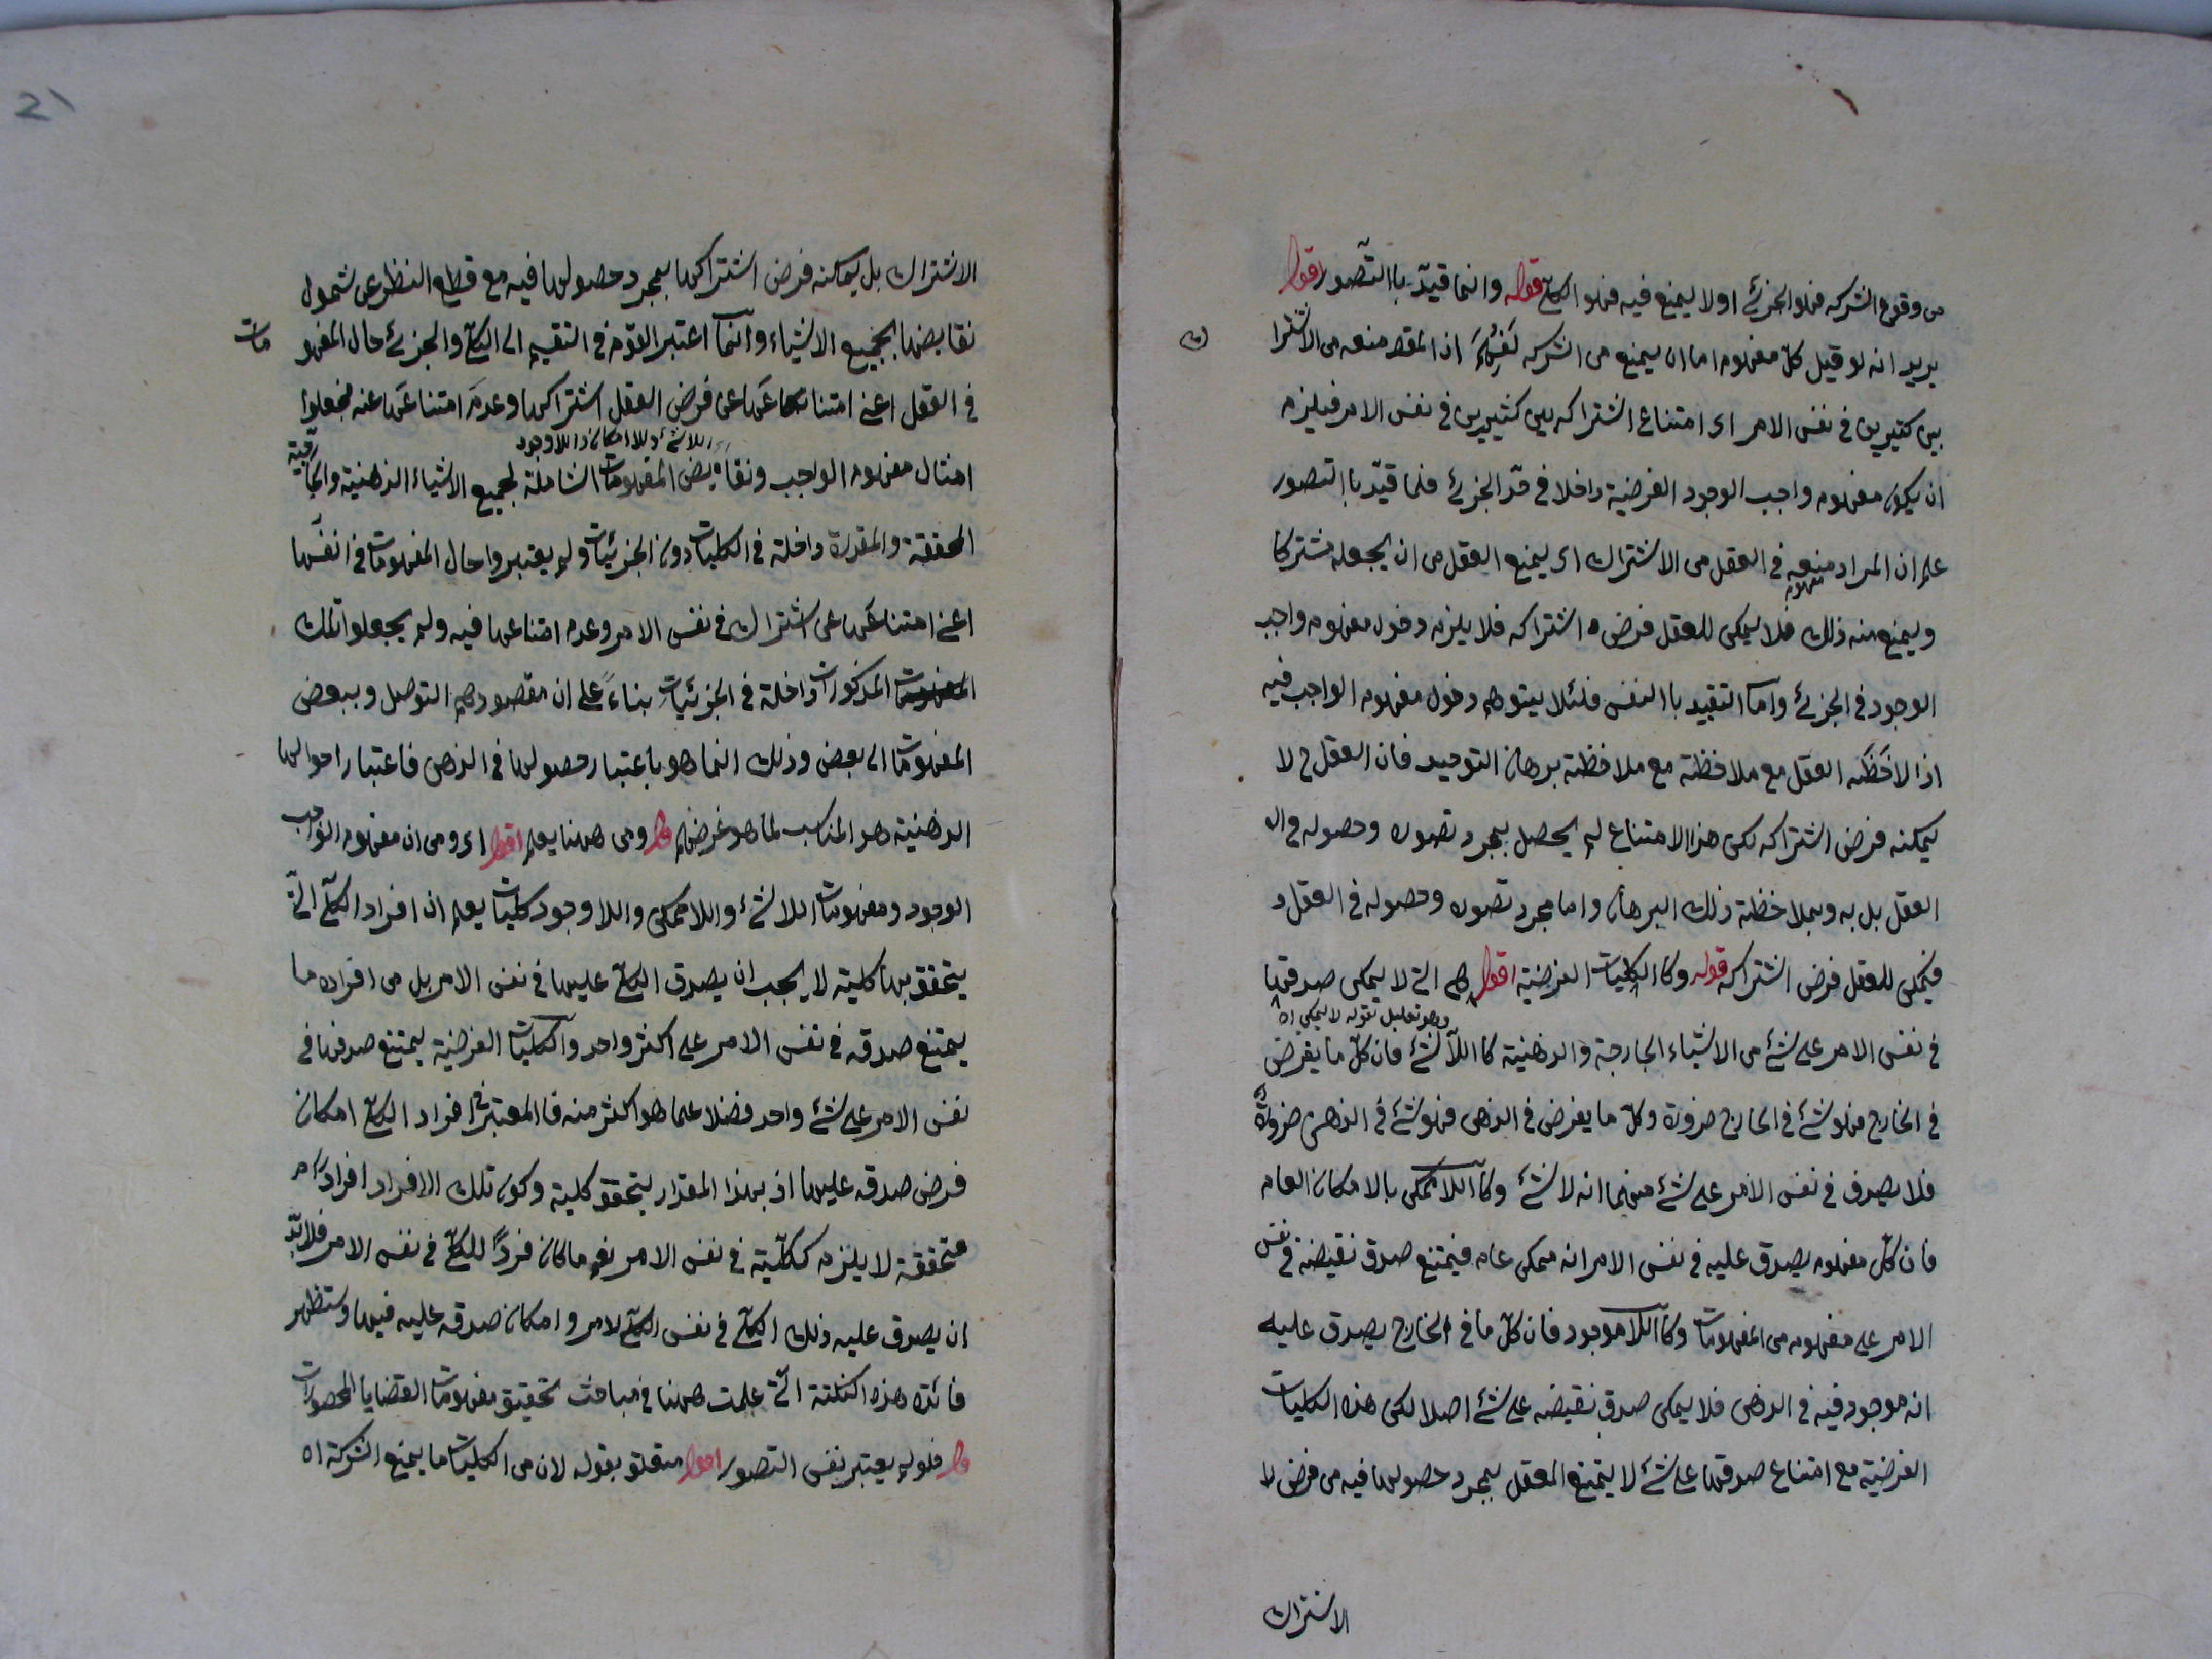 من وقوع الشركه فهو الجزئے اولا يمنع فيه فهو الكلي قوله وانما قيّد باالتصور اقول
يريد انه لو قيل كل مفهوم اما ان يمنع من الشركه يفهم ان المقصد منعه من الاشترا
ك
بين كثيرين في نفس الامر اى امتناع اشتراكه بين كثيرين في نفس الامر فيلزم
ان يكون مفهوم واجب الوجود الفرضية داخلا في حدّ الجزئے فلما قيّد باالتصور
علم ان المراد منعه في العقل من الاشتراك اى يمنع العقل من ان يجعله مشتركا
مفهومه
ويمنع منه ذلك فلا يمكن للعقل فرض ه اشتراكه فلا يلزم دخول مفهوم واجب
الوجود في الجزئے وامّا التقييد باالنفس فلئلا يتوهم دخول مفهوم الواجب فيه
اذا لاحَظَه العقل مع ملاحظة مع ملاحظة برهان التوحيد فان العقل ح لا
يمكنه فرض اشتراكه لكن هذا الامتناع لم يحصل بمجرد تصوره وحصوله في ال
العقل بل به وبملاحظة ذلك البرهان واما مجرد تصوره وحصوله في العقل و
فيمكن للعقل فرض اشتراكه قوله وكاالكليات الفرضية اقول هى التے لا يمكن صدقها
وهو تعليل لقوله لا يمكن اه
في نفس الامر على شئ من الاشياء الخارجة والذهنية كا اللّاشئ فان كلّ ما يفرض
في الخارج فهو شئ في الخارج ضرورة وكل ما يفرض في الذهن فهو شئ في الذهن ضرورة
فلا يصدق في نفس الامر على شئ منهما انه لا شئ وكا اللّاممكن بالامكان العام
فان كلّ مفهوم يصدق عليه في نفس الامر انه ممكن عام فيمتنع صدق نقيضه في نفس
الامر على مفهوم من المفهومات وكا اللّاموجود فان كلّ ما في الخارج يصدق عليه
انه موجود فيه في الذهن فلا يمكن صدق نقيضه على شئ اصلا لكن هذه الكليات
الفرضية مع امتناع صدقها على شئ لا يمتنع العقل بمجرد حصولها فيه من فرض لا
الاشتراك
21
الاشتراك بل يمكنه فرض اشتراكها بمجرد حصولها فيه مع قطع النظر عن شمول
نقايضها بجميع الاشياء وانّما اعتبر القوم في التقسيم الى الكلي والجزئے حال المفهو
مات
في العقل اعنے امتناعَها عن فرض العقل اشتراكها وعدمَ امتناعَها عنه فجعلوا
اللاشئ واللاامكان واللاوجود
امثال مفهوم الواجب ونقايض المفهومات الشاملة لجميع الاشياء الذهنية والخارجية
المحققة والمقدرة داخلة في الكليات دون الجزئيات ولم يعتبروا حال المفهومات في انفسها
اعنے امتناعَها عن اشتراك في نفس الامر وعدم امتناعها فيه ولم يجعلوا تلك
المفهومات المذكورات داخلة في الجزئيات بناءً على ان مقصودهم التوصل وببعض
المفهومات الى بعض وذلك انما هو باعتبار حصولها في الذهن فاعتبار احوالها
الذهنية هو المناسب لما هو غرضهم قوله ومن ههنا يعلم اقول اى ومن ان مفهوم الواجب
الوجود ومفهومات اللاشئ واللاممكن واللاوجود كليات يعلم ان افراد الكلّے الّتے
يتحقق بها كلية لا يجب ان يصدق الكلي عليها في نفس الامر بل من افراده ما
يمتنع صدقه في نفس الامر على اكثر واحد والكليات الفرضية يمتنع صدقها في
نفس الامر على شئ واحد فضلا عما هو اكثر منه فا المعتبر في افراد الكلي امكان
فرض صدقه عليها اذ بهذا المقدار يتحقق كلية وكون تلك الافراد افرادًا
متحققة لا يلزم ككلّية في نفس الامر نعم ما كان فردًا للكلّے في نفس الامر فلا بدّ
ان يصدق عليه ذلك الكلي في نفس الكلي لامر و امكان صدقه عليه فيها وستظهر
فائدة هذه النكتة الّتے علمت ههنا في مباحث تحقيق مفهومات القضايا المحصورات
قوله فلو لم يعتبر نفس التصور اقول متعلق بقوله لان من الكليات ما يمنع الشركة اه